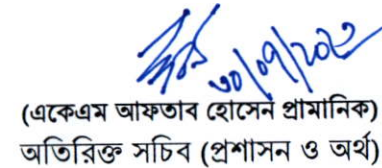 ৩০/০৭/২০২৩
(একেএম আফতাব হোসেন প্রামানিক)
অতিরিক্ত সচিব (প্রশাসন ও অর্থ)